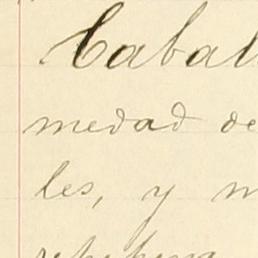 Cabal
medad de
les, y m